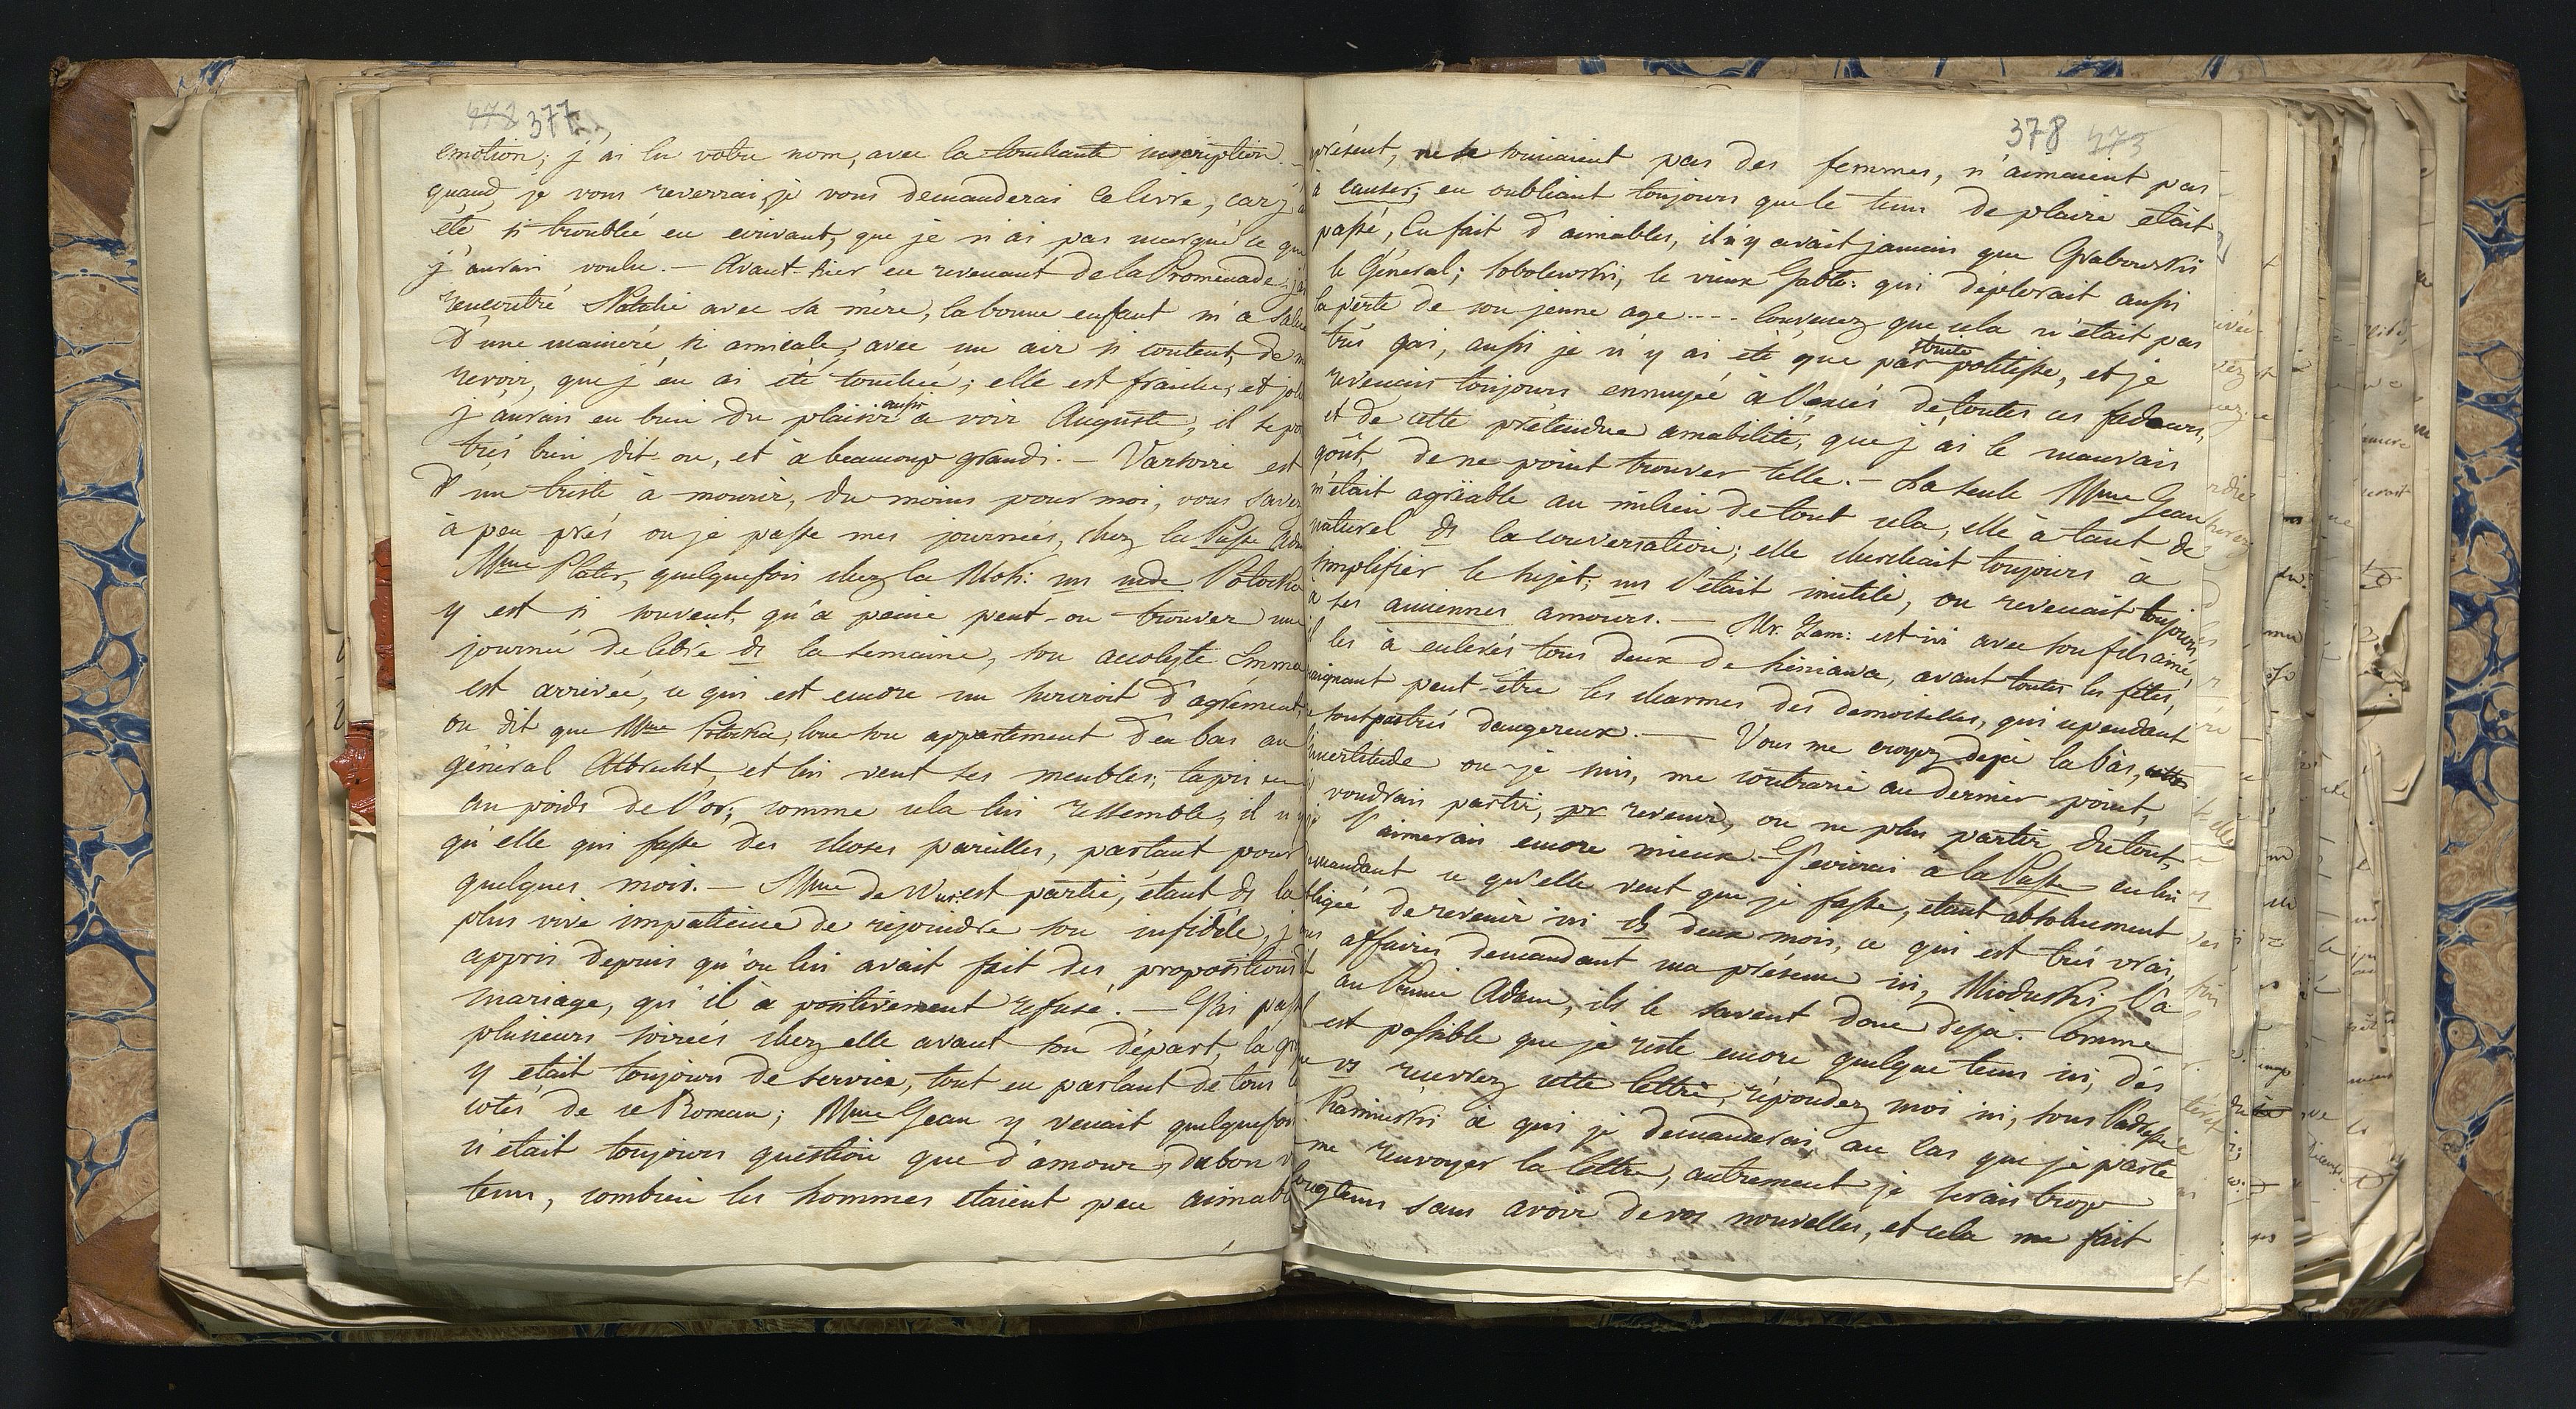 478 377
emotion; j'ai lu votre nom, avec la touchante inscription. –
quand je vous reverrai, je vous demanderai ce livre, car j'ai
été si troublée en ecrivant, que je n'ai pas marqué ce que
j'aurais voulu. – Avant-hier en revenant de la Promenade, j'ai
rencontré Natalie avec sa mère, la bonne enfant m'a salué
d'une maniere si amicale, avec un air si content, de m
revoir, que j'en ai été touchée; elle est fraiche, et jolie
j'aurais eu bien du plaisir aussi à voir Auguste, il se por
très bien dit on, et à beaucoup grandi. – Varsovie est
d'un triste à mourir, du moins pour moi, vous savez
à peu près ou je passe mes journées, chez la Psse Ada
Mme Plater, quelquefois chez la Mok: ms mde Potocka
y est si souvent, qu'à peine peut-on trouver une
journée de libre ds la semaine, son accolyte Emma
est arrivée, ce qui est encore un surcroit d'agrément,
on dit que Mme Potocka, loue son appartement d'en bas au
général Albrecht, et lui vent ses meubles, tapis
au poids de l'or; comme cela lui ressemble, il n'y
qu'elle qui fasse des choses pareilles, partant pour
quelques mois. – Mme de Wur: est partie, étant ds la
plus vive impatience de rejoindre son infidèle, j'
appris depuis qu'on lui avait fait des propositions d
mariage, qu'il à positivement refusé. – J'ai passé
plusieurs soirées chez elle avant son départ, la
y etait toujours de service, tout en parlant de tous le
cotés de ce Roman; Mme Jean y venait quelquefois
n'etait toujours question que d'amour, du bon v
tems, combien les hommes etaient peu aimabl
378 473
présent, ne se souciaient pas des femmes, n'aimaient pas
à causer; en oubliant toujours que le tems de plaire etait
passé, en fait d'aimables, il n'y avait jamais que Grabowski
le Général; Sobolewski, le vieux Jablo: qui déplorait aussi
la perte de son jeune age.... convenez que cela n'etait pas
très gai, aussi je n'y ai été que par stricte politesse, et je
revenais toujours ennuyée à l'excès de toutes ces fadeurs,
et de cette prétendue amabilité, que j'ai le mauvais
goût, de ne point trouver telle. – La seule Mme Jean
m'était agréable au milieu de tout cela, elle à tant de
naturel ds la conversation; elle cherchait toujours à
simplifier le sujet, ms c'était inutile, on revenait toujours
à ses anciennes amours. – Mr. Zam: est ici avec son fils ainé,
il les à enlevés tous deux de Siniawa, avant toutes les fêtes,
craignant peut-être les charmes des demoiselles, qui cependant
sont pas très dangereux. – Vous me croyez deja la bas, cette
incertitude ou je suis, me contrarie au dernier point,
je voudrais partir, pr revenir, ou ne plus partir du tout,
j'aimerais encore mieux. J'ecrirai à la Psse en lui
demandant ce qu'elle veut que je fasse, etant absolument
obligée de revenir ici ds deux mois, ce qui est très vrai,
mes affaires demandant ma présence ici, Mioduski l'a
dit au Prince Adam, ils le savent donc deja. – Comme
il est possible que je reste encore quelque tems ici, dès
que vs recevrez cette lettre, répondez moi ici, sous l'adresse
Kaminski à qui je demanderai, au cas que je parte
me renvoyer la lettre, autrement je serais trop
longtems sans avoir de vos nouvelles, et cela me fait